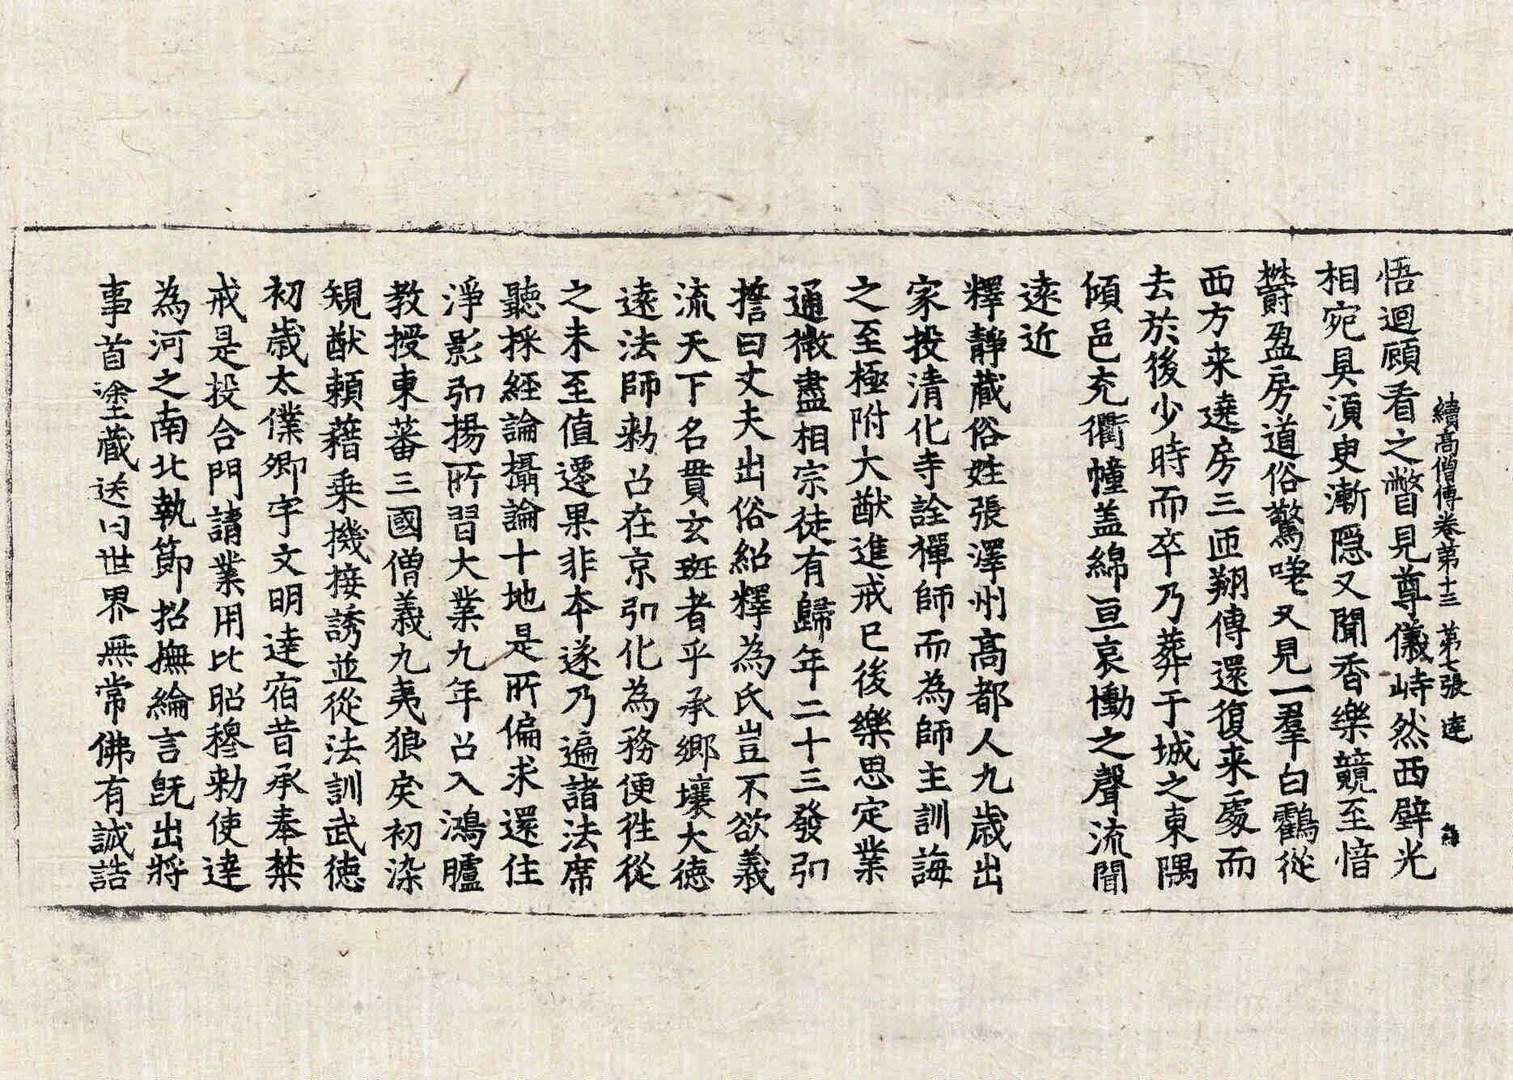 續高僧傳卷第十三 第七張 達
悟迴顧看之瞥見尊儀峙然西壁光
相宛具須臾漸隱又聞香樂競至愔
欝盈房道俗驚嗟又見一羣白鸖從
西方来遶房三匝翔傳還復来處而
去於後少時而卒乃葬于城之東隅
傾邑充衢幢盖綿亘哀慟之聲流聞
遠近
釋靜蔵俗姓張澤州髙都人九歳出
家投清化寺詮禪師而為師主訓誨
之至極附大猷進戒已後樂思定業
通微盡相宗徒有歸年二十三發引
擔曰丈夫出俗紹釋為氏豈不欲義
流天下名貫玄班者乎承鄉壤大德
遠法師勅召在京引化為務便徃從
之未至值遷果非本遂乃遍諸法席
聽採経論攝論十地是所偏求還住
淨影引揚所習大業九年召入鴻臚
教授東蕃三國僧義九夷狼戾初染
䂓猷頼藉乗機接誘並從法訓武徳
初歳太僕卿宇文明逹宿昔承奉禁
戒是投合門請業用比昭穆勅使逹
為河之南北執節招撫綸言旣出將
事首塗蔵送曰世界無常佛有誠誥